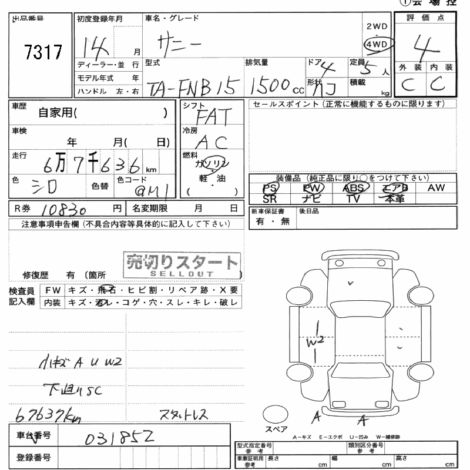 ①会場控
出品番号 初度登録年月 車名・グレード 2WD 評価点
7317 14年 月 サニー 4WD 4
ディーラー・並行 型式 排気量 ドア 定員 外装 内装
モデル年式 年 TA-FNB15 1500cc 4 5人 C C
ハンドル 左・右 形状 ハコ 積載 kg
車歴 自家用( ) シフト FAT セールスポイント(正常に機能するものに限ります)
車検 年 月( )日 冷房 AC
走行 6万7千636km 燃料 ガソリン 軽・油
色 シロ 色替 色コード @M1
装備品(純正品に限り○をつけて下さい)
PS PW ABS エアB AW
SR ナビ TV 本革
R券 10830円 名変期限 月 日
新車保証書 後日品
有・無
注意事項申告欄(不具合内容等具体的に記入して下さい)
売切りスタート
SELLOUT
修復歴 有(箇所
検査員記入欄 FW キズ・飛石・ヒビ割・リペア跡・X要
内装 キズ・汚レ・コゲ・穴・スレ・キレ・破レ
小キズ A U W2
下廻りSC
67637km スタットレス
車台番号 031852
W2
A A
スペア
A-キズ E-エクボ U-凹み W-補修跡
型式指定番号 類別区分番号
車検証明用参考 長さ cm 幅 cm 高さ cm